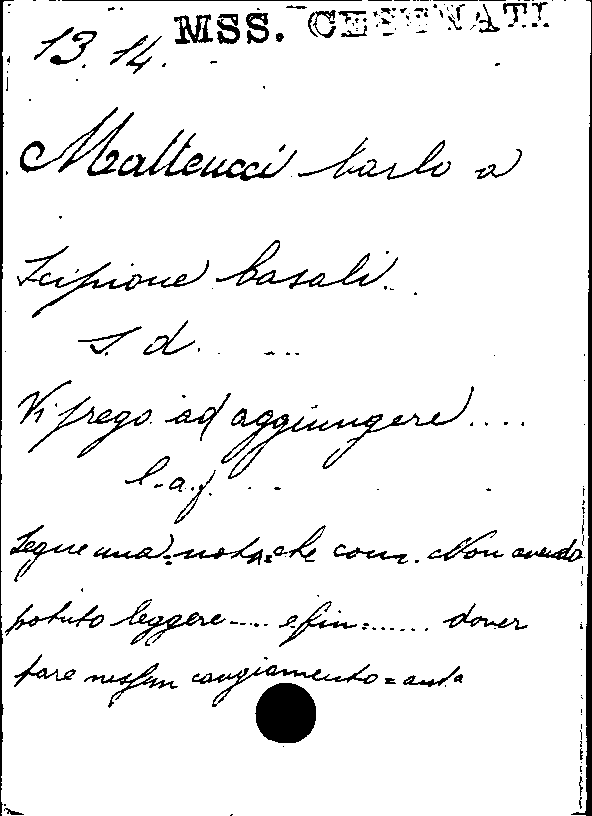 MSS. CESENATI
13. 14.
Matteucci Carlo a
Scipione Casali.
S. d. ...
Vi prego ad aggiungere ....
C. a. f. ..
Segue una = nota = che com. Non avendo
potuto leggere .... e fin = ...... dover
fare nessun cangiamento =